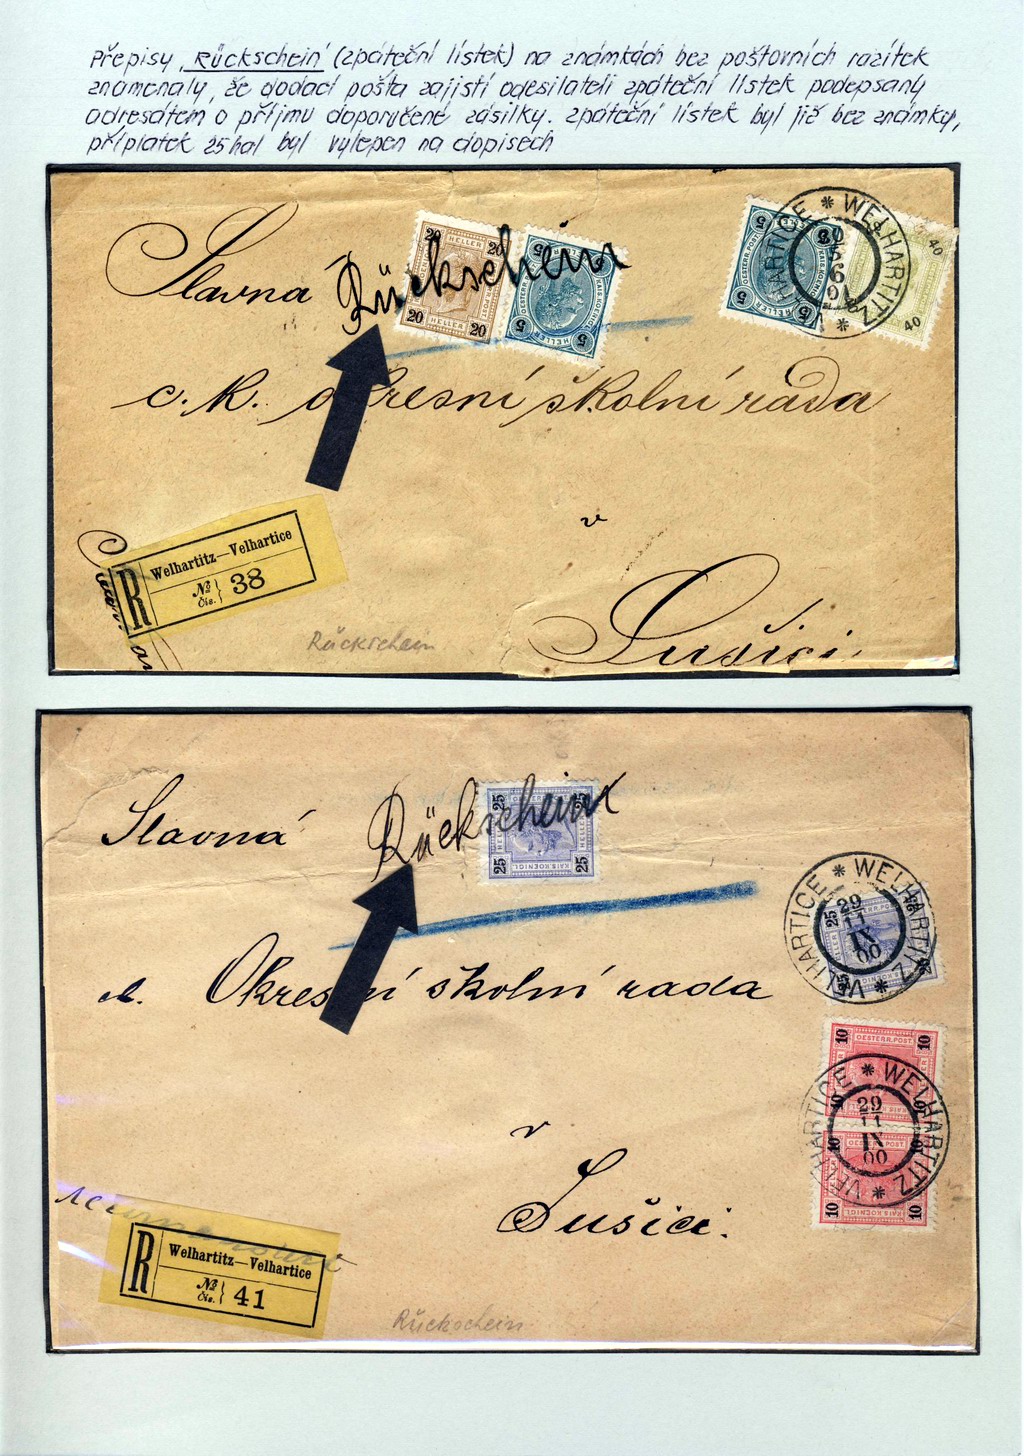 Přepisy „Rückschein“ (zpáteční lístek) na známkách bez poštovních razítek
znamenaly, že dodací pošta zajistí odesilateli zpáteční lístek podepsaný
adresátem o příjmu doporučené zásilky. Zpáteční lístek byl již bez známky,
příplatek 25 hal byl vylepen na dopisech
Slavná Rückschein
20 HELLER 20
20 HELLER 20
5 5
5 HELLER 5
5 5
5 HELLER
40
40
WELHARTITZ * VELHARTICE *
c. k. okresní školní rada
v
Sušici.
R Welhartitz—Velhartice
№ Čís. 38
Rückschein
Slavná Rückschein
25 25
25 KAIS. KOENIGL. 25
WELHARTITZ * VELHARTICE *
29
11
IX
00
sl. Okresní školní rada
10 OESTERR. POST 10
WELHARTITZ * VELHARTICE *
29
11
IX
00
10 KAIS. KOENIGL. 10
v
Sušici.
R Welhartitz—Velhartice
№ Čís. 41
Rückschein